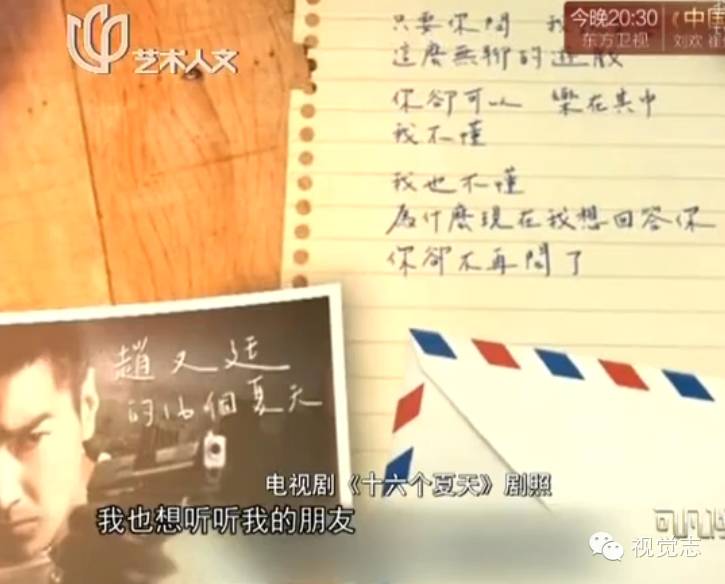 艺术人文
今晚20:30《中国
东方卫视 刘欢
只要你問 我
這麼無聊的遊戲
你卻可以 樂在其中
我不懂
我也不懂
為什麼現在我想回答你
你卻不再問了
趙又廷
的16個夏天
电视剧《十六个夏天》剧照
我也想听听我的朋友
可凡
视觉志